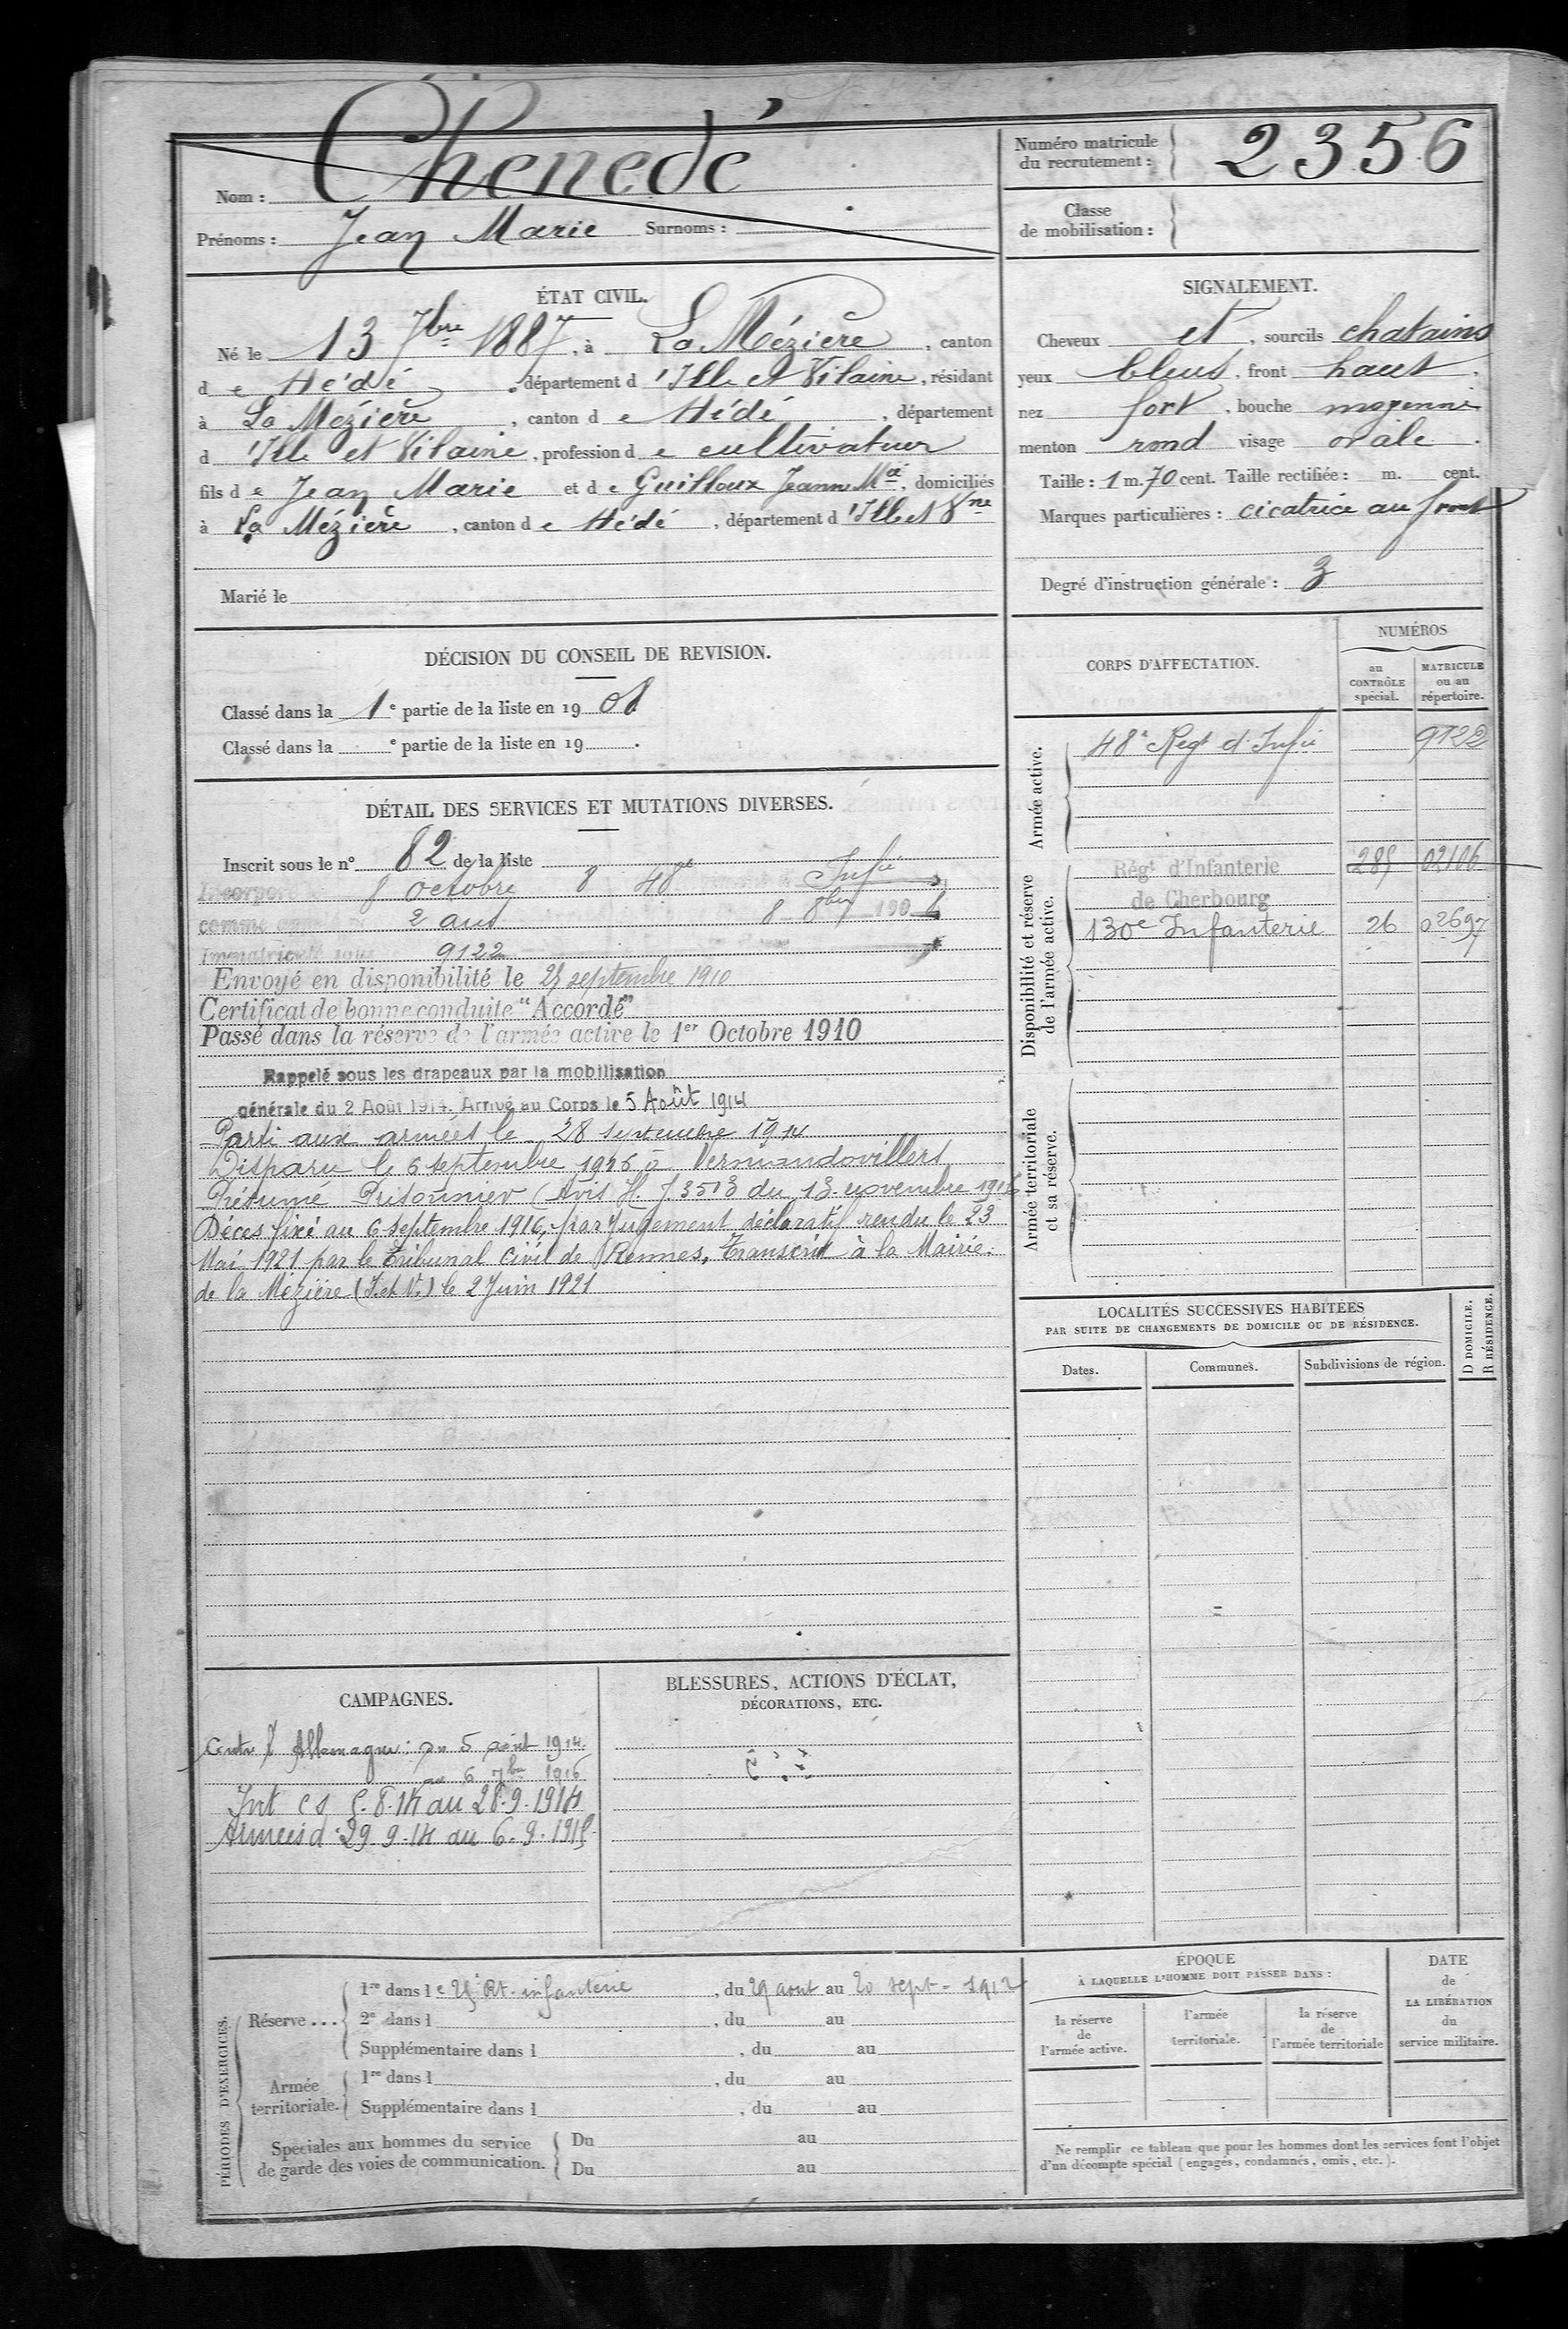 Nom : Chenedé
Prénoms : Jean Marie Surnoms :
Numéro matricule
du recrutement : 2356
Classe
de mobilisation :
ÉTAT CIVIL.
Né le 13 7bre 1887, à La Mézière, canton
de Hédé, département d'Ille et Vilaine, résidant
à La Mézière, canton de Hédé, département
d'Ille et Vilaine, profession de cultivateur
fils de Jean Marie et de Guilloux Jeanne Mie, domiciliés
à La Mézière, canton de Hédé, département d'Ille et Vne
Marié le
SIGNALEMENT.
Cheveux et, sourcils chatains
yeux bleus, front haut.
nez fort, bouche moyenne
menton rond visage ovale.
Taille : 1 m. 70 cent. Taille rectifiée : m. cent.
Marques particulières : cicatrice au front
Degré d'instruction générale : 3
DÉCISION DU CONSEIL DE REVISION.
Classé dans la 1e partie de la liste en 1908
Classé dans la e partie de la liste en 19 .
DÉTAIL DES SERVICES ET MUTATIONS DIVERSES.
Inscrit sous le n° 82 de la liste
Incorporé 8 octobre 8 48e Infie
comme 2 ans 8 8bre 190
Immatriculé sous 9122
Envoyé en disponibilité le 25 septembre 1910
Certificat de bonne conduite "Accordé"
Passé dans la réserve de l'armée active le 1er Octobre 1910
Rappelé sous les drapeaux par la mobilisation
générale du 2 Août 1914. Arrivé au Corps le 5 Août 1914
Parti aux armées le 28 septembre 1914
Disparu le 6 septembre 1916 à Vermandovillers
Présumé Prisonnier (Avis H. J 3513 du 13 novembre 1916
Décès fixé au 6 septembre 1916, par jugement déclaratif rendu le 23
Mai 1921 par le tribunal civil de Rennes, transcrit à la Mairie
de la Mézière (I. et V.) le 2 Juin 1921
CORPS D'AFFECTATION.
NUMÉROS
au
CONTRÔLE
spécial.
MATRICULE
ou au
répertoire.
Armée active.
48e Regt d'Infie 9122
Disponibilité et réserve
de l'armée active.
Régt d'Infanterie 285 02106
de Cherbourg
130e Infanterie 26 02697
Armée territoriale
et sa réserve.
LOCALITÉS SUCCESSIVES HABITÉES
PAR SUITE DE CHANGEMENTS DE DOMICILE OU DE RÉSIDENCE.
Dates.
Communes.
Subdivisions de région.
D DOMICILE.
R RÉSIDENCE.
CAMPAGNES.
Contre l'Allemagne : du 5 août 1914.
au 6 7bre 1916
Int cs 5.8.14 au 28.9.1914
Armées d 29.9.14 au 6.9.191
BLESSURES, ACTIONS D'ÉCLAT,
DÉCORATIONS, ETC.
PÉRIODES D'EXERCICES.
Réserve ...
1re dans le 25e Rt. infanterie, du 29 aout au 20 sept - 1912
2e dans l , du au
Supplémentaire dans l , du au
Armée
territoriale.
1re dans l , du au
Supplémentaire dans l , du au
Spéciales aux hommes du service
de garde des voies de communication.
Du au
Du au
ÉPOQUE
À LAQUELLE L'HOMME DOIT PASSER DANS :
la réserve
de
l'armée active.
l'armée
territoriale.
la réserve
de
l'armée territoriale
DATE
de
LA LIBÉRATION
du
service militaire.
Ne remplir ce tableau que pour les hommes dont les services font l'objet
d'un décompte spécial (engagés, condamnés, omis, etc.).